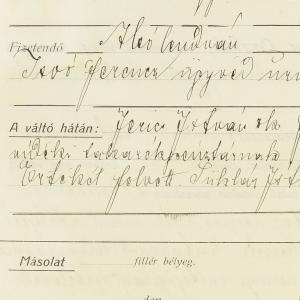 Fizetendő Alsó lendván
Isoó Ferencz ügyvéd úrn
A váltó hátán: Jerics István sk
vidéki takarékpénztárnak
Értékét felvett. Siklár Ist
Másolat fillér bélyeg.
den